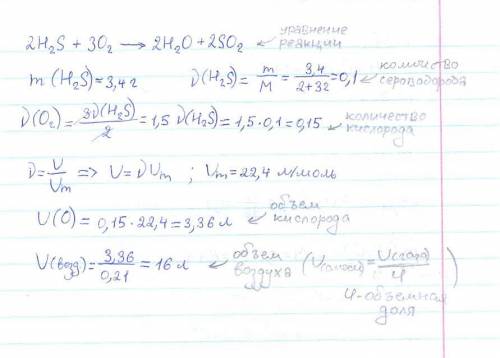 2H₂S + 3O₂ → 2H₂O + 2SO₂ ← уравнение реакции
m(H₂S) = 3,4г ν(H₂S) = m/M = 3,4/(2+32) = 0,1 ← количество сероводорода
ν(O₂) = 3ν(H₂S)/2 = 1,5 ν(H₂S) = 1,5·0,1 = 0,15 ← количество кислорода
ν = V/Vm => V = νVm ; Vm = 22,4 л/моль
V(O) = 0,15·22,4 = 3,36 л ← объем кислорода
V(возд) = 3,36/0,21 = 16 л ← объем воздуха (V(смеси) = V(газа)/φ)
φ-объемная доля